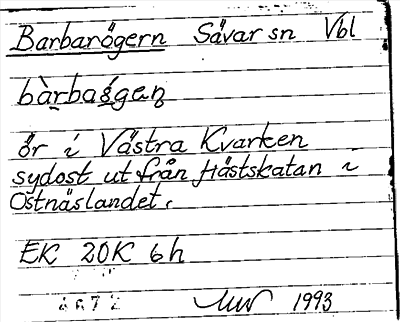 Barbarögern Sävar sn Vbl
bàrbaǵgan
ör i Västra Kvarken
sydost ut från Hästskatan i
Ostnäslandet.
EK 20K 6h
1993